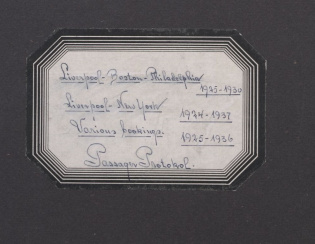 Liverpool - Boston - Philadelphia
1925-1930
Liverpool - New York 1924-1937
Various bookings. 1925-1936
Passager Protokol.